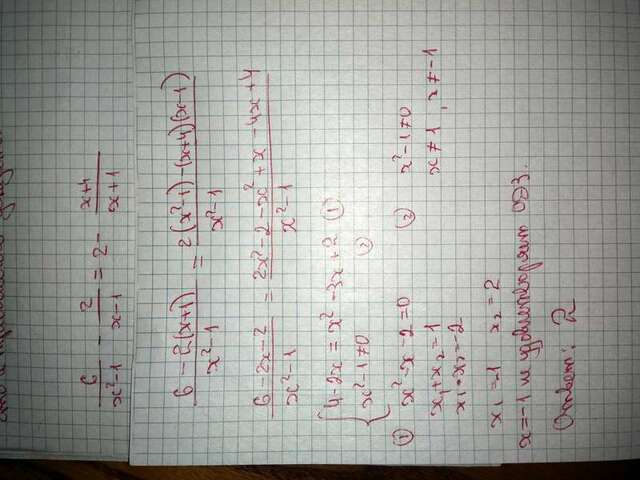 6/(x²-1) - 2/(x-1) = 2 - (x+4)/(x+1)
(6-2(x+1))/(x²-1) = (2(x²-1)-(x+4)(x-1))/(x²-1)
(6-2x-2)/(x²-1) = (2x²-2-x²+x-4x+4)/(x²-1)
{ 4-2x = x²-3x+2 ①
x²-1≠0 ②
① x²-x-2=0
x₁+x₂=1
x₁·x₂=-2
x₁=-1 x₂=2
② x²-1≠0
x≠1, x≠-1
x=-1 не удовлетворяет ОДЗ.
Ответ: 2